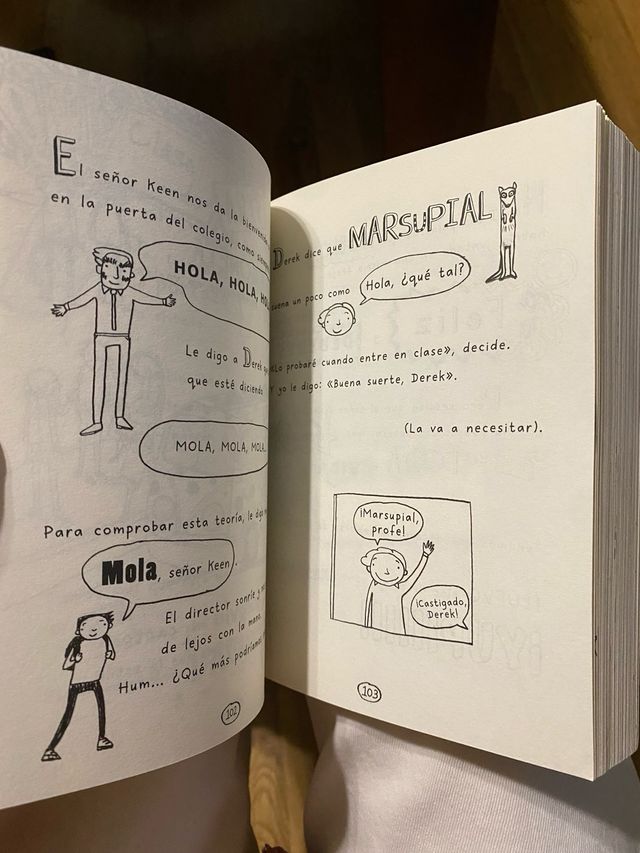 El señor Keen nos da la
en la puerta del colegio, como
HOLA, HOLA,
Le digo a Derek
que esté diciendo
MOLA, MOLA, MOLA...
Para comprobar esta teoría, le
Mola, señor Keen.
El director sonríe y
de lejos con la mano.
Hum... ¿Qué más
102
Derek dice que MARSUPIAL
suena un poco como
Hola, ¿qué tal?
«Lo probaré cuando entre en clase», decide.
Y yo le digo: «Buena suerte, Derek».
(La va a necesitar).
¡Marsupial,
profe!
¡Castigado,
Derek!
103